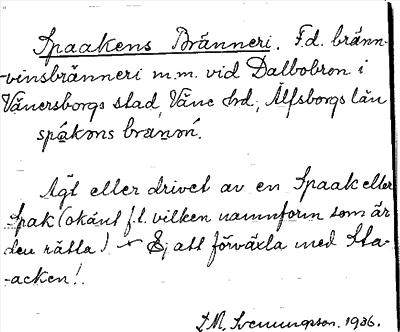 Spaakens Bränneri. F.d. bränn-
-vinsbränneri m.m. vid Dalbobron i
Vänersborgs stad, Väne hd., Älfsborgs län
spákons branən.
Ägt eller drivet av en Spaak eller
Spak (okänt f.l. vilken namnform som är
den rätta) Ej att förväxla med Sta-
-acken!.
Svenungsson. 1936.